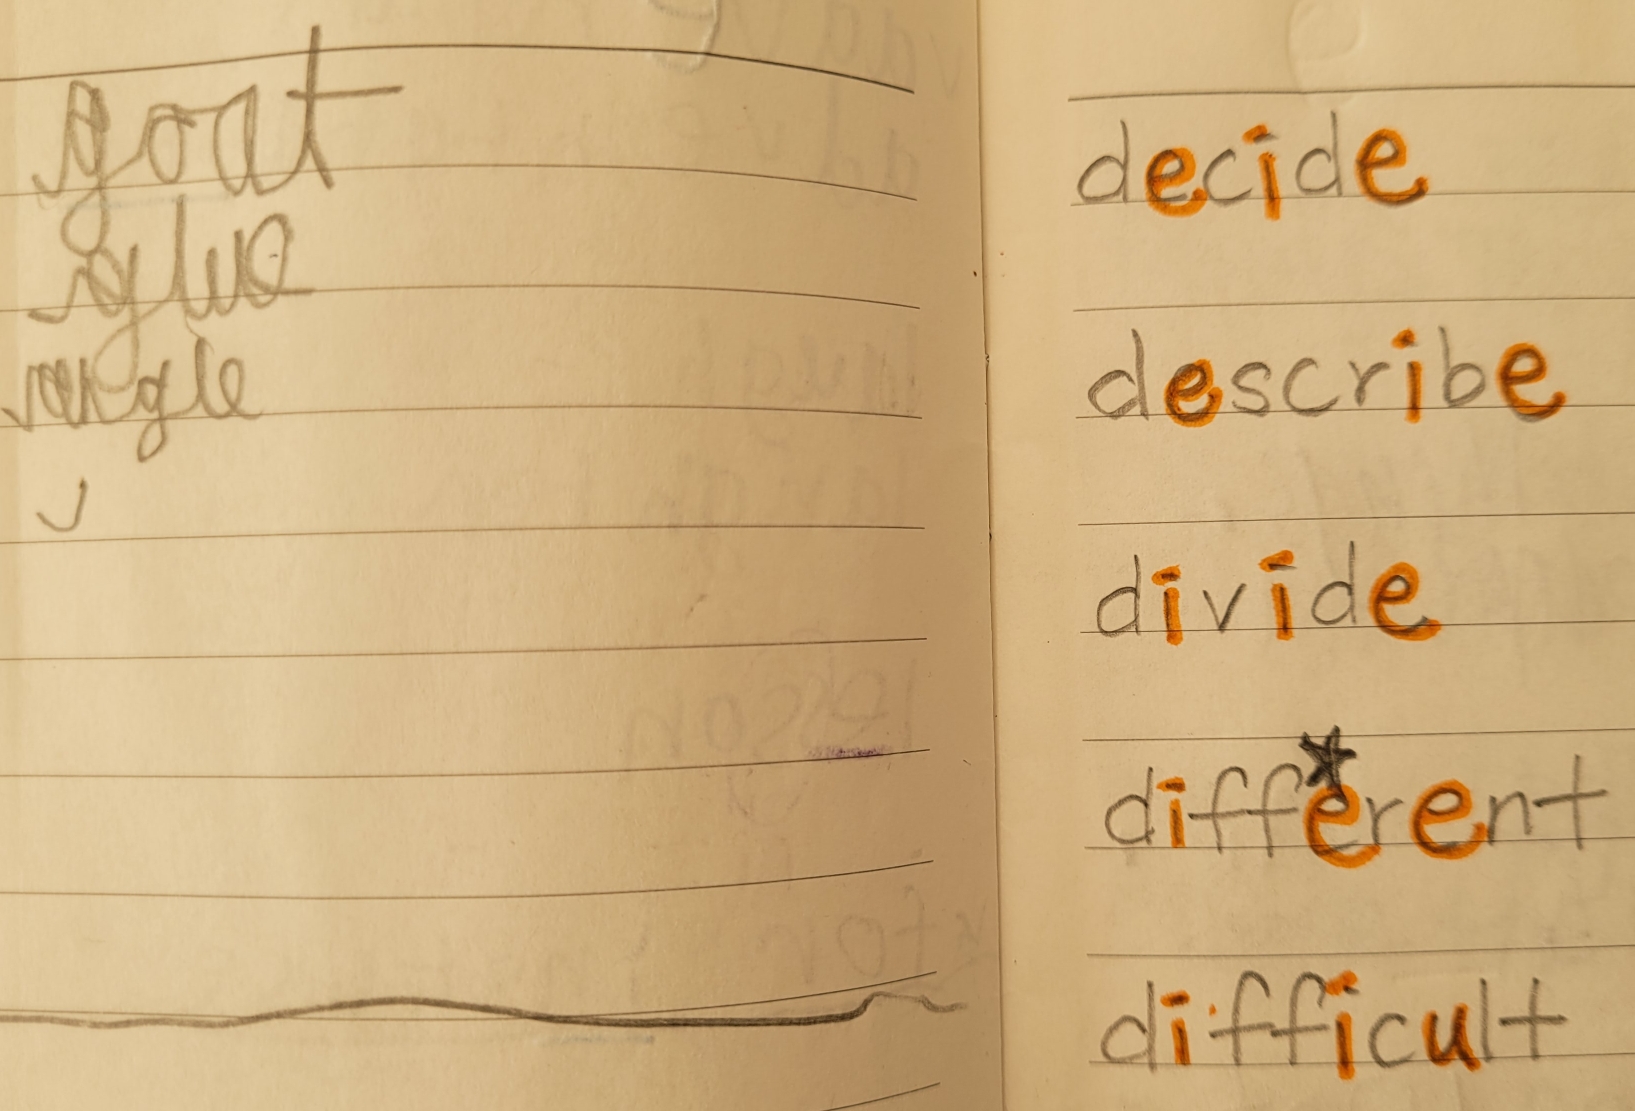 goat
glue
decide
describe
divide
different
difficult